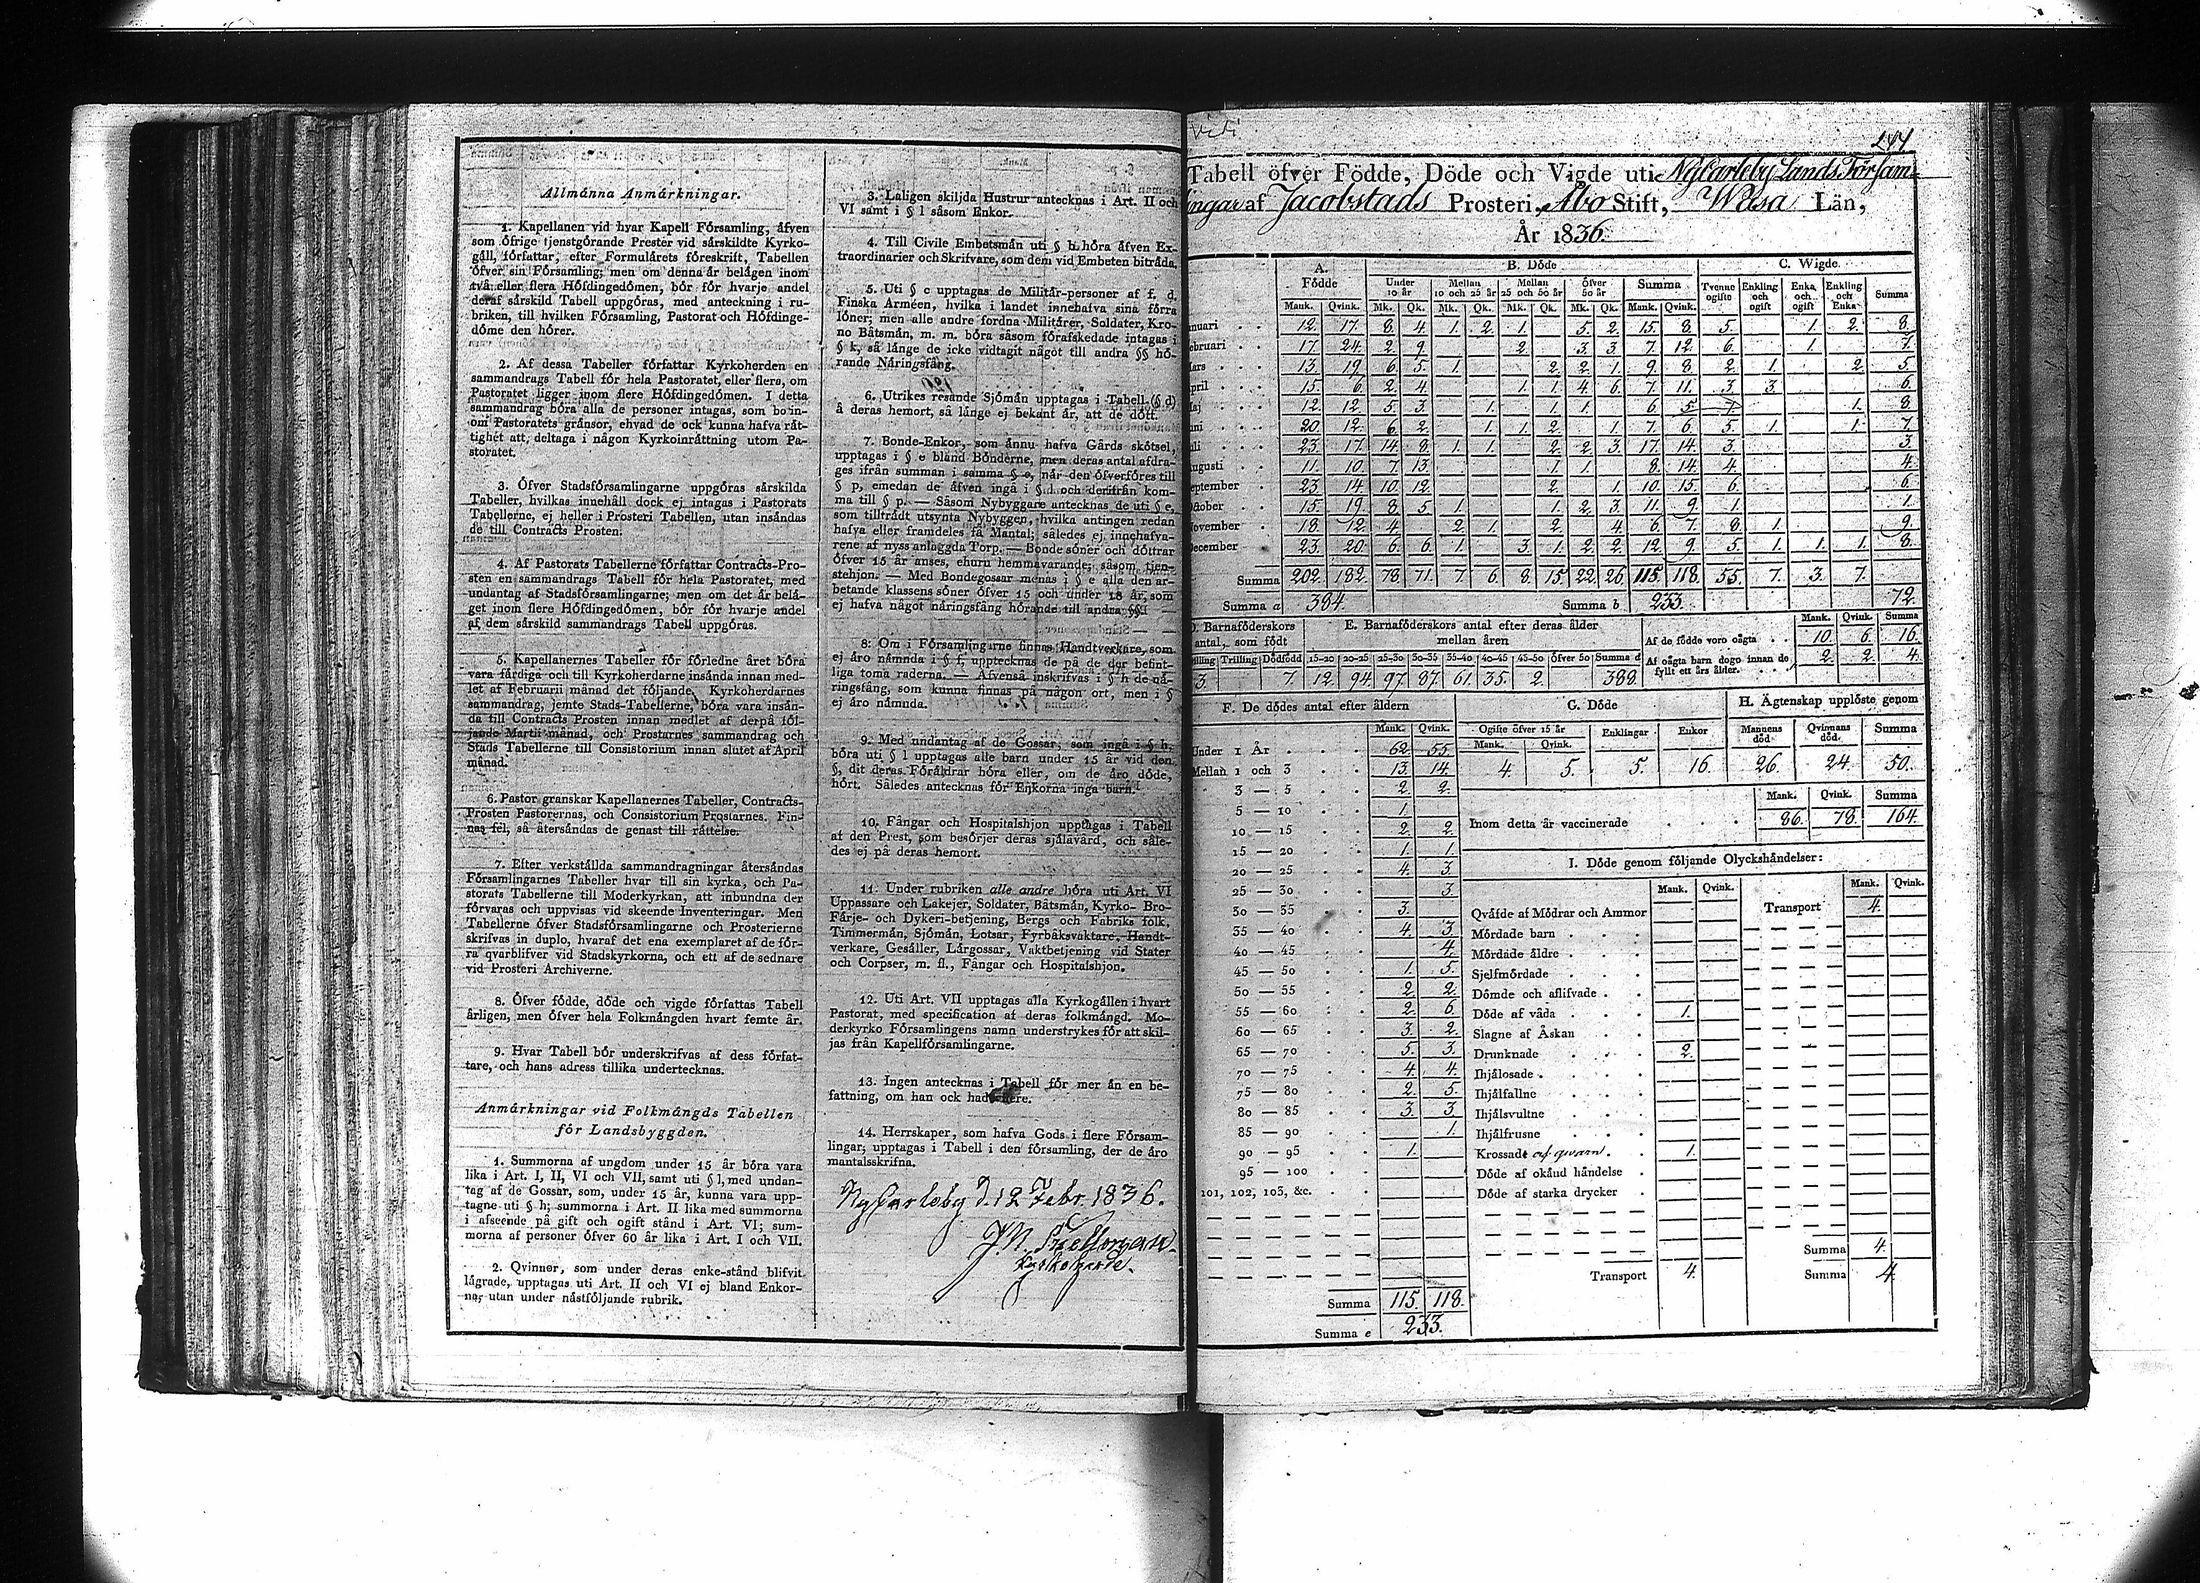 Allmänna Anmärkningar.
1. Kapellanen vid hvar Kapell Församling, äfven
som öfrige tjenstgörande Prester vid särskildte Kyrko-
gäll, författar, efter Formulärets föreskrift, Tabellen
öfver sin Församling; men om denna är belägen inom
två eller flera Höfdingedömen, bör för hvarje andel
deraf särskild Tabell uppgöras, med anteckning i ru-
briken, till hvilken Församling, Pastorat och Höfdinge-
döme den hörer.
2. Af dessa Tabeller författar Kyrkoherden en
sammandrags Tabell för hela Pastoratet, eller flera, om
Pastoratet ligger inom flere Höfdingedömen. I detta
sammandrag böra alla de personer intagas, som bo in-
om Pastoratets gränsor, ehvad de ock kunna hafva rät-
tighet att deltaga i någon Kyrkoinrättning utom Pa-
storatet.
3. Öfver Stadsförsamlingarne uppgöras särskilda
Tabeller, hvilkas innehåll dock ej intages i Pastorats
Tabellerne, ej heller i Prosteri Tabellen, utan insändas
de till Contracts Prosten.
4. Af Pastorats Tabellerne författar Contracts-Pro-
sten en sammandrags Tabell för hela Pastoratet, med
undantag af Stadsförsamlingarne; men om det är belä-
get inom flere Höfdingedömen, bör för hvarje andel
af dem särskild sammandrags Tabell uppgöras.
5. Kapellanernes Tabeller för förledne året böra
vara färdiga och till Kyrkoherdarne insända innan med-
let af Februarii månad det följande, Kyrkoherdarnes
sammandrag, jemte Stads-Tabellerne, böra vara insän-
da till Contracts Prosten innan medlet af derpå föl-
jande Martii månad, och Prostarnes sammandrag och
Stads Tabellerne till Consistorium innan slutet af April
månad.
6. Pastor granskar Kapellanernes Tabeller, Contracts-
Prosten Pastorernas, och Consistorium Prostarnes. Fin-
nas fel, så återsändas de genast till rättelse.
7. Efter verkställda sammandragningar återsändas
Församlingarnes Tabeller hvar till sin kyrka, och Pa-
storats Tabellerne till Moderkyrkan, att inbundna der
förvaras och uppvisas vid skeende Inventeringar. Men
Tabellerne öfver Stadsförsamlingarne och Prosterierne
skrifvas in duplo, hvaraf det ena exemplaret af de för-
ra qvarblifver vid Stadskyrkorna, och ett af de sednare
vid Prosteri Archiverne.
8. Öfver födde, döde och vigde författas Tabell
årligen, men öfver hela Folkmängden hvart femte år.
9. Hvar Tabell bör underskrifvas af dess förfat-
tare, och hans adress tillika undertecknas.
Anmärkningar vid Folkmängds Tabellen
för Landsbyggden.
1. Summorna af ungdom under 15 år böra vara
lika i Art. I, II, VI och VII, samt uti § l, med undan-
tag af de Gossar, som, under 15 år, kunna vara upp-
tagne uti § h; summorna i Art. II lika med summorna
i afseende på gift och ogift stånd i Art. VI; sum-
morna af personer öfver 60 år lika i Art. I och VII.
2. Qvinnor, som under deras enke-stånd blifvit
lägrade, upptagas uti Art. II och VI ej bland Enkor-
na, utan under nästföljande rubrik.
3. Laligen skiljda Hustrur antecknas i Art. II och
VI samt i § l såsom Enkor.
4. Till Civile Embetsmän uti § b höra äfven Ex-
traordinarier och Skrifvare, som dem vid Embeten biträda.
5. Uti § c upptagas de Militär-personer af f. d.
Finska Arméen, hvilka i landet innehafva sina förra
löner; men alle andre fordna Militärer, Soldater, Kro-
no Båtsmän, m. m. böra såsom förafskedade intagas i
§ k, så länge de icke vidtagit något till andra §§ hö-
rande Näringsfång.
6. Utrikes resande Sjömän upptagas i Tabell (§ d)
å deras hemort, så länge ej bekant är, att de dött.
7. Bonde-Enkor, som ännu hafva Gårds skötsel,
upptagas i § e bland Bönderne, men deras antal afdra-
ges ifrån summan i samma § e, när den öfverföres till
§ p, emedan de äfven ingå i § l och derifrån kom-
ma till § p. — Såsom Nybyggare antecknas de uti § e,
som tillträdt utsynta Nybyggen, hvilka antingen redan
hafva eller framdeles få Mantal; således ej innehafva-
rene af nyss anlaggda Torp. — Bonde söner och döttrar
öfver 15 år anses, ehuru hemmavarande, såsom tjen-
stehjon. — Med Bondegossar menas i § e alla den ar-
betande klassens söner öfver 15 och under 18 år, som
ej hafva något näringsfång hörande till andra §§.
8. Om i Församlingarne finnas Handtverkare, som
ej äro nämnda i § f, upptecknas de på de der befint-
liga toma raderna. — Äfvenså inskrifvas i § h de nä-
ringsfång, som kunna finnas på någon ort, men i §
ej äro nämnda.
9. Med undantag af de Gossar, som ingå i § h,
böra uti § l upptagas alle barn under 15 år vid den
§, dit deras Föräldrar höra eller, om de äro döde,
hört. Således antecknas för Enkorna inga barn.
10. Fångar och Hospitalshjon upptagas i Tabell
af den Prest, som besörjer deras själavård, och såle-
des ej på deras hemort.
11. Under rubriken alle andre höra uti Art. VI
Uppassare och Lakejer, Soldater, Båtsmän, Kyrko- Bro-
Färje- och Dykeri-betjening, Bergs och Fabriks folk,
Timmermän, Sjömän, Lotsar, Fyrbåksvaktare, Handt-
verkare, Gesäller, Lärgossar, Vaktbetjening vid Stater
och Corpser, m. fl., Fångar och Hospitalshjon.
12. Uti Art. VII upptagas alla Kyrkogällen i hvart
Pastorat, med specification af deras folkmängd. Mo-
derkyrko Församlingens namn understrykes för att skil-
jas från Kapellförsamlingarne.
13. Ingen antecknas i Tabell för mer än en be-
fattning, om han ock hade flere.
14. Herrskaper, som hafva Gods i flere Försam-
lingar, upptagas i Tabell i den församling, der de äro
mantalsskrifna.
NyCarleby d. 12 Febr. 1836.
Kyrkoherde.
Tabell öfver Födde, Döde och Vigde uti NyCarleby Lands Församl-
ingar af Jacobstads Prosteri, Åbo Stift, Wasa Län,
År 1836.
A. Födde B. Döde C. Wigde
Under 10 år Mellan 10 och 25 år Mellan 25 och 50 år Öfver 50 år Summa Tvenne ogifte Enkling och ogift Enka och ogift Enkling och Enka Summa
Mank. Qvink. Mk. Qk. Mk. Qk. Mk. Qk. Mk. Qk. Mank. Qvink.
nuari 12. 17. 8. 4. 1. 2. 1. 5. 2. 15. 8. 5. 1. 2. 8.
ebruari 17. 24. 2. 9. 2. 3. 3. 7. 12. 6. 1. 7.
ars 13. 19. 6. 5. 1. 2. 2. 1. 9. 8. 2. 1. 2. 5.
pril 15. 6. 2. 4. 1. 1. 4. 6. 7. 11. 3. 3. 6.
aj 12. 12. 5. 3. 1. 1. 1. 6. 5. 7. 1. 8
uni 20. 12. 6. 2. 1. 1. 2. 1. 7. 6. 5. 1. 1. 7.
uli 23. 17. 14. 8. 1. 1. 2. 2. 3. 17. 14. 3. 3.
ugusti 11. 10. 7. 13. 1. 1. 8. 14. 4. 4.
eptember 23. 14. 10. 12. 2. 1. 10. 15. 6. 6.
ctober 15. 19. 8. 5. 1. 1. 2. 3. 11. 9. 1. 1.
ovember 18. 12. 4. 2. 1. 2. 4. 6. 7. 8. 1. 9.
ecember 23. 20. 6. 6. 1. 3. 1. 2. 2. 12. 9. 5. 1. 1. 1. 8.
Summa 202. 182. 78. 71. 7. 6. 8. 15. 22. 26. 115. 118. 55. 7. 3. 7.
Summa a 384. Summa b 233. 72.
D. Barnaföderskors antal, som födt
illing Trilling Dödfödd
3. 7.
E. Barnaföderskors antal efter deras ålder mellan åren
15-20 20-25 25-30 30-35 35-40 40-45 45-50 öfver 50 Summa d
12. 94. 97. 87. 61. 35. 2. 388.
Mank. Qvink. Summa
Af de födde voro oägta 10. 6. 16.
Af oägta barn dogo innan de fyllt ett års ålder. 2. 2. 4.
F. De dödes antal efter åldern
Mank. Qvink.
Under 1 År 62. 55.
Mellan 1 och 3 13. 14.
3 — 5 2. 2.
5 — 10 1.
10 — 15 2. 2.
15 — 20 1. 1.
20 — 25 4. 3.
25 — 30 3.
30 — 35 3.
35 — 40 4. 3.
40 — 45 4.
45 — 50 1. 5.
50 — 55 2. 2.
55 — 60 2. 6.
60 — 65 3. 2.
65 — 70 5. 3.
70 — 75 4. 4.
75 — 80 2. 5.
80 — 85 3. 3
85 — 90 1.
90 — 95 1.
95 — 100
101, 102, 103, &c.
Summa 115. 118.
Summa e 233.
G. Döde
Ogifte öfver 15 år Enklingar Enkor
Mank. Qvink.
4. 5. 5. 16.
H. Ägtenskap upplöste genom
Mannens död. Qvinnans död. Summa
26. 24. 50.
Mank. Qvink. Summa
Inom detta år vaccinerade 86. 78. 164.
I. Döde genom följande Olyckshändelser:
Mank. Qvink. Mank. Qvink.
Qväfde af Mödrar och Ammor Transport 4.
Mördade barn
Mördade äldre
Sjelfmördade
Dömde och aflifvade
Döde af våda 1.
Slagne af Åskan
Drunknade 2.
Ihjälosade
Ihjälfallne
Ihjälsvultne
Ihjälfrusne
Krossade af qvarn 1.
Döde af okänd händelse
Döde af starka drycker
Summa 4.
Transport 4. Summa 4